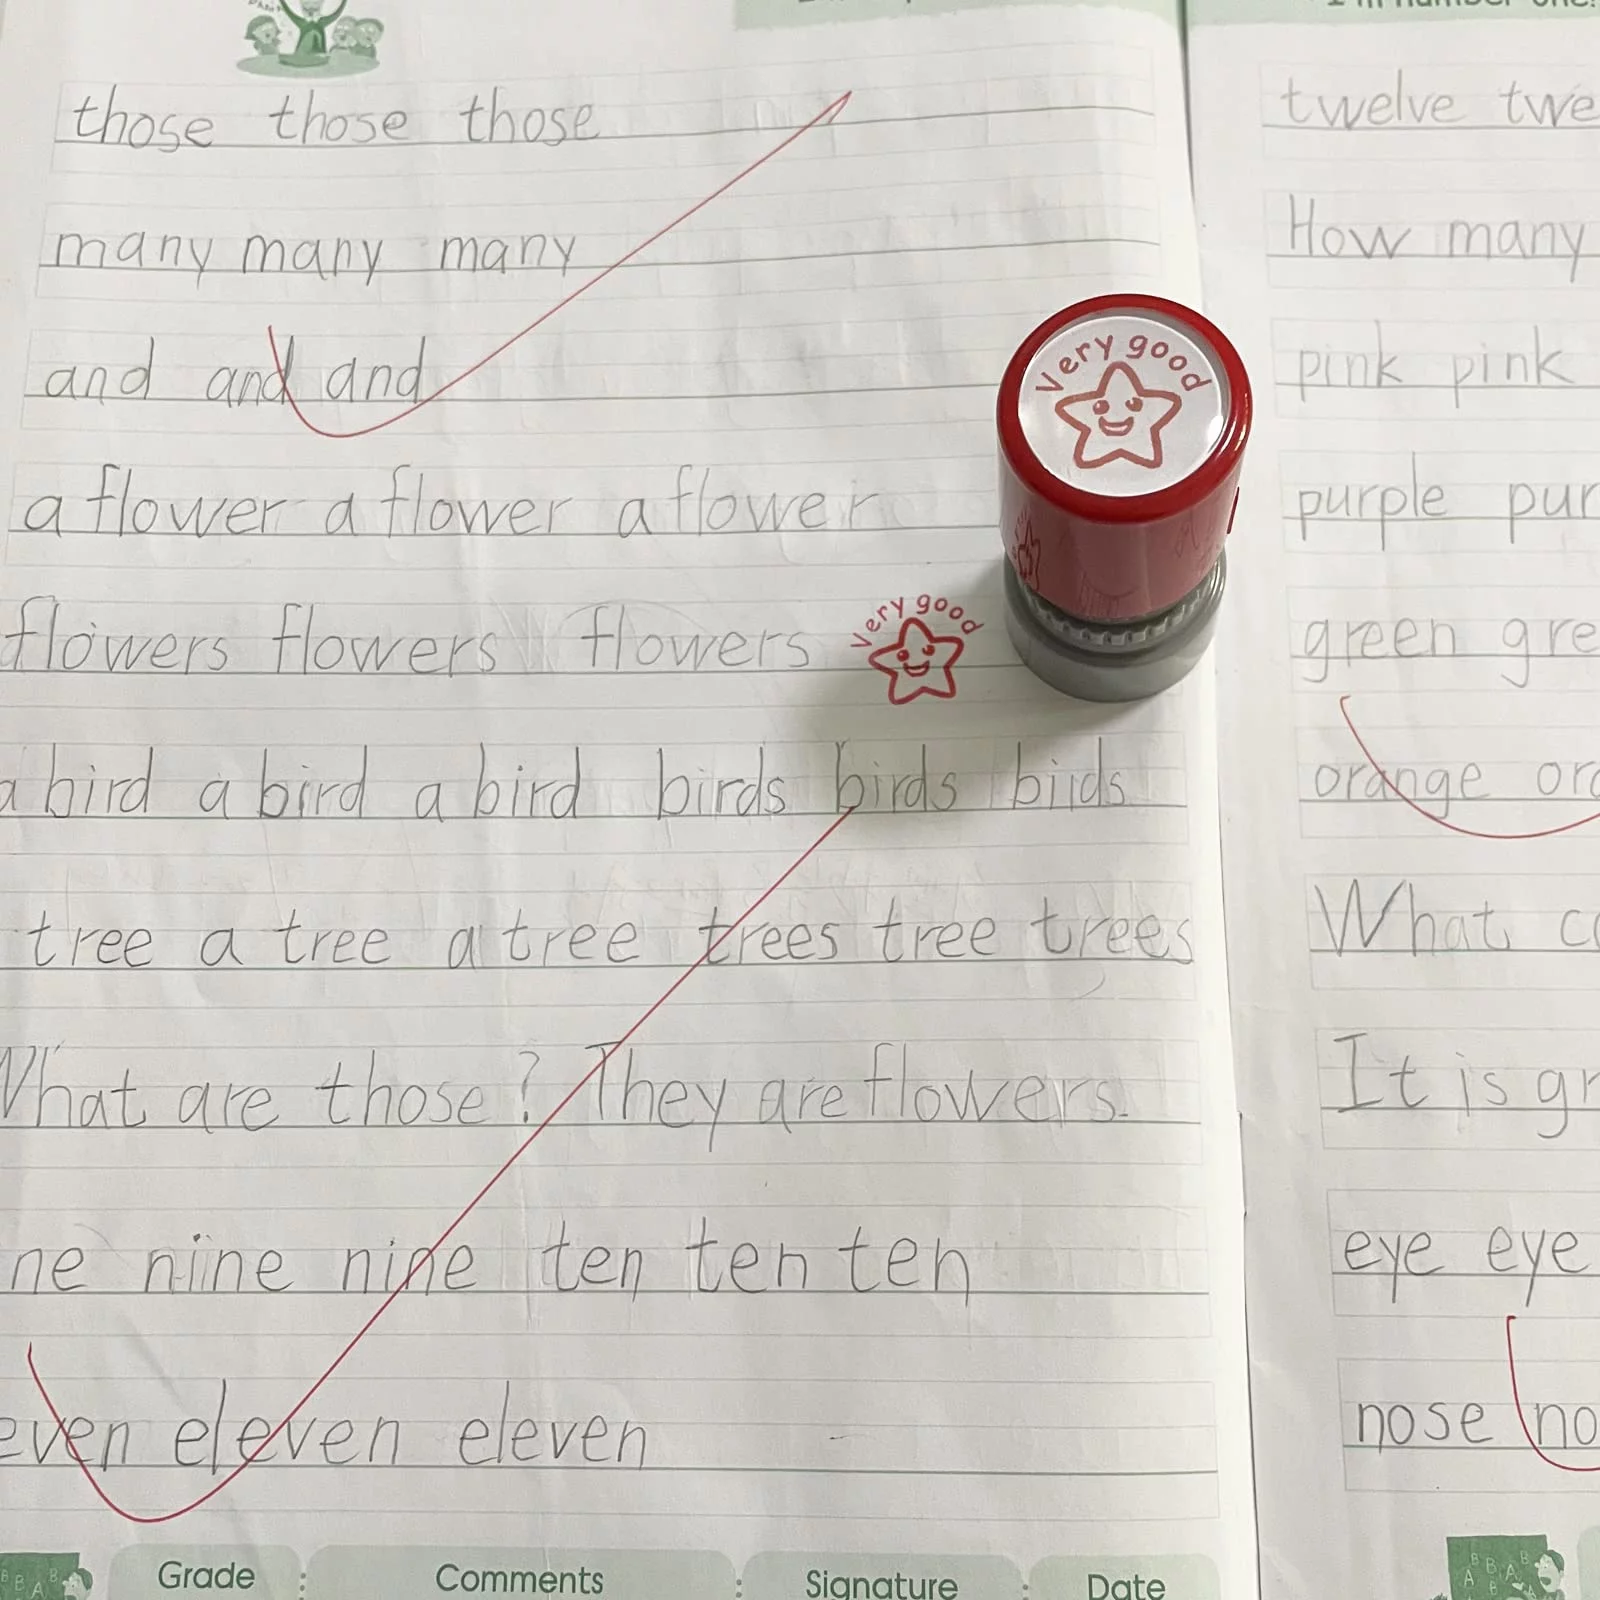 those those those
many many many
and and and
a flower a flower a flower
flowers flowers flowers
Very good
Very good
a bird a bird a bird birds birds biids
tree a tree a tree trees tree trees
What are those? They are flowers.
ne nine nine ten ten ten
even eleven eleven
Grade : Comments : Signature : Date
twelve twe
How many
pink pink
purple pur
green gre
orange ora
What co
It is gr
eye eye
nose no